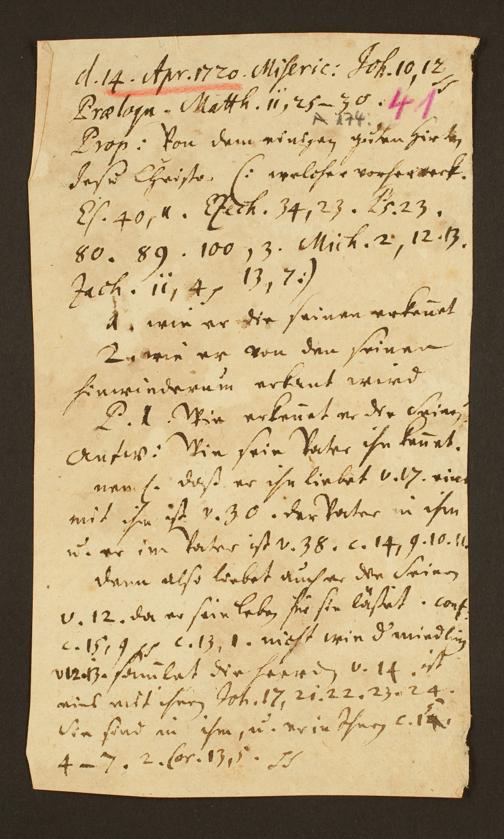 d. 14. Apr. 1720. Miseric: Joh. 10, 12
Præloqu. Matth. 11, 25–30. 41
A 174.
Prop: Von dem einigen guten Hirten
Jesu Christo. (: welcher vorher verk.
Es. 40, 11. Ezech. 34, 23. Ps. 23.
80. 89. 100, 3. Mich. 2, 12. 13.
Zach. 11, 4, 13, 7:)
1. wie er die seinen erkennet
2. wie er von den seinen
hinwiederum erkant wird
P. 1. Wie erkennet er die Seinen
Antw: Wie sein Vater ihn kennet.
neml. daß er ihn liebet v. 17. eins
mit ihm ist v. 30. der Vater in ihm
u. er im Vater ist v. 38. c. 14, 9. 10. 11.
denn also liebet auch er die Seinen
v. 12. da er sein Leben für sie läßet. conf.
c. 15, 9 c. 13, 1. nicht wie d. miedling
v. 12. 13. samlet die heerde v. 14. ist
eins mit ihnen Joh. 17, 21. 22. 23. 24.
Sie sind in ihm, u. er in Ihnen c. 15.
4–7. 2. Cor. 13, 5.